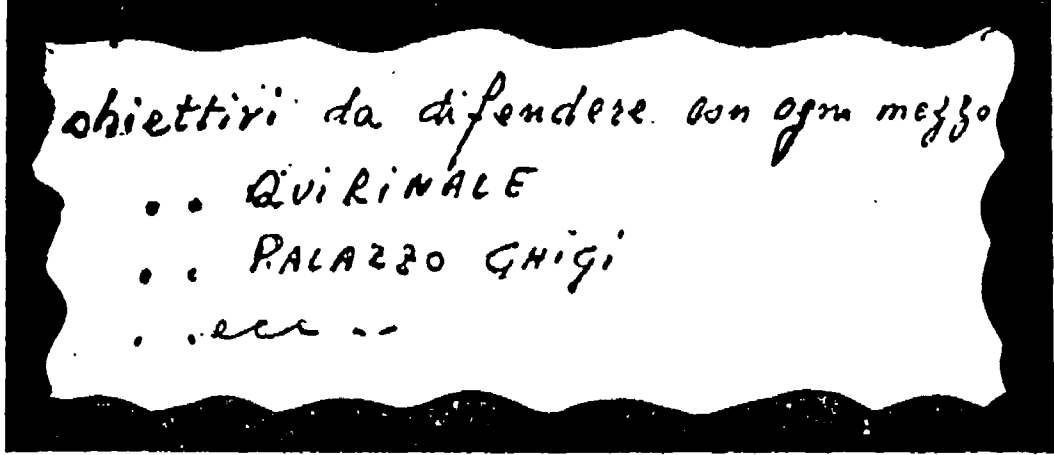 obiettivi da difendere con ogni mezzo
.. QUIRINALE
.. PALAZZO GHIGI
. . ecc ..